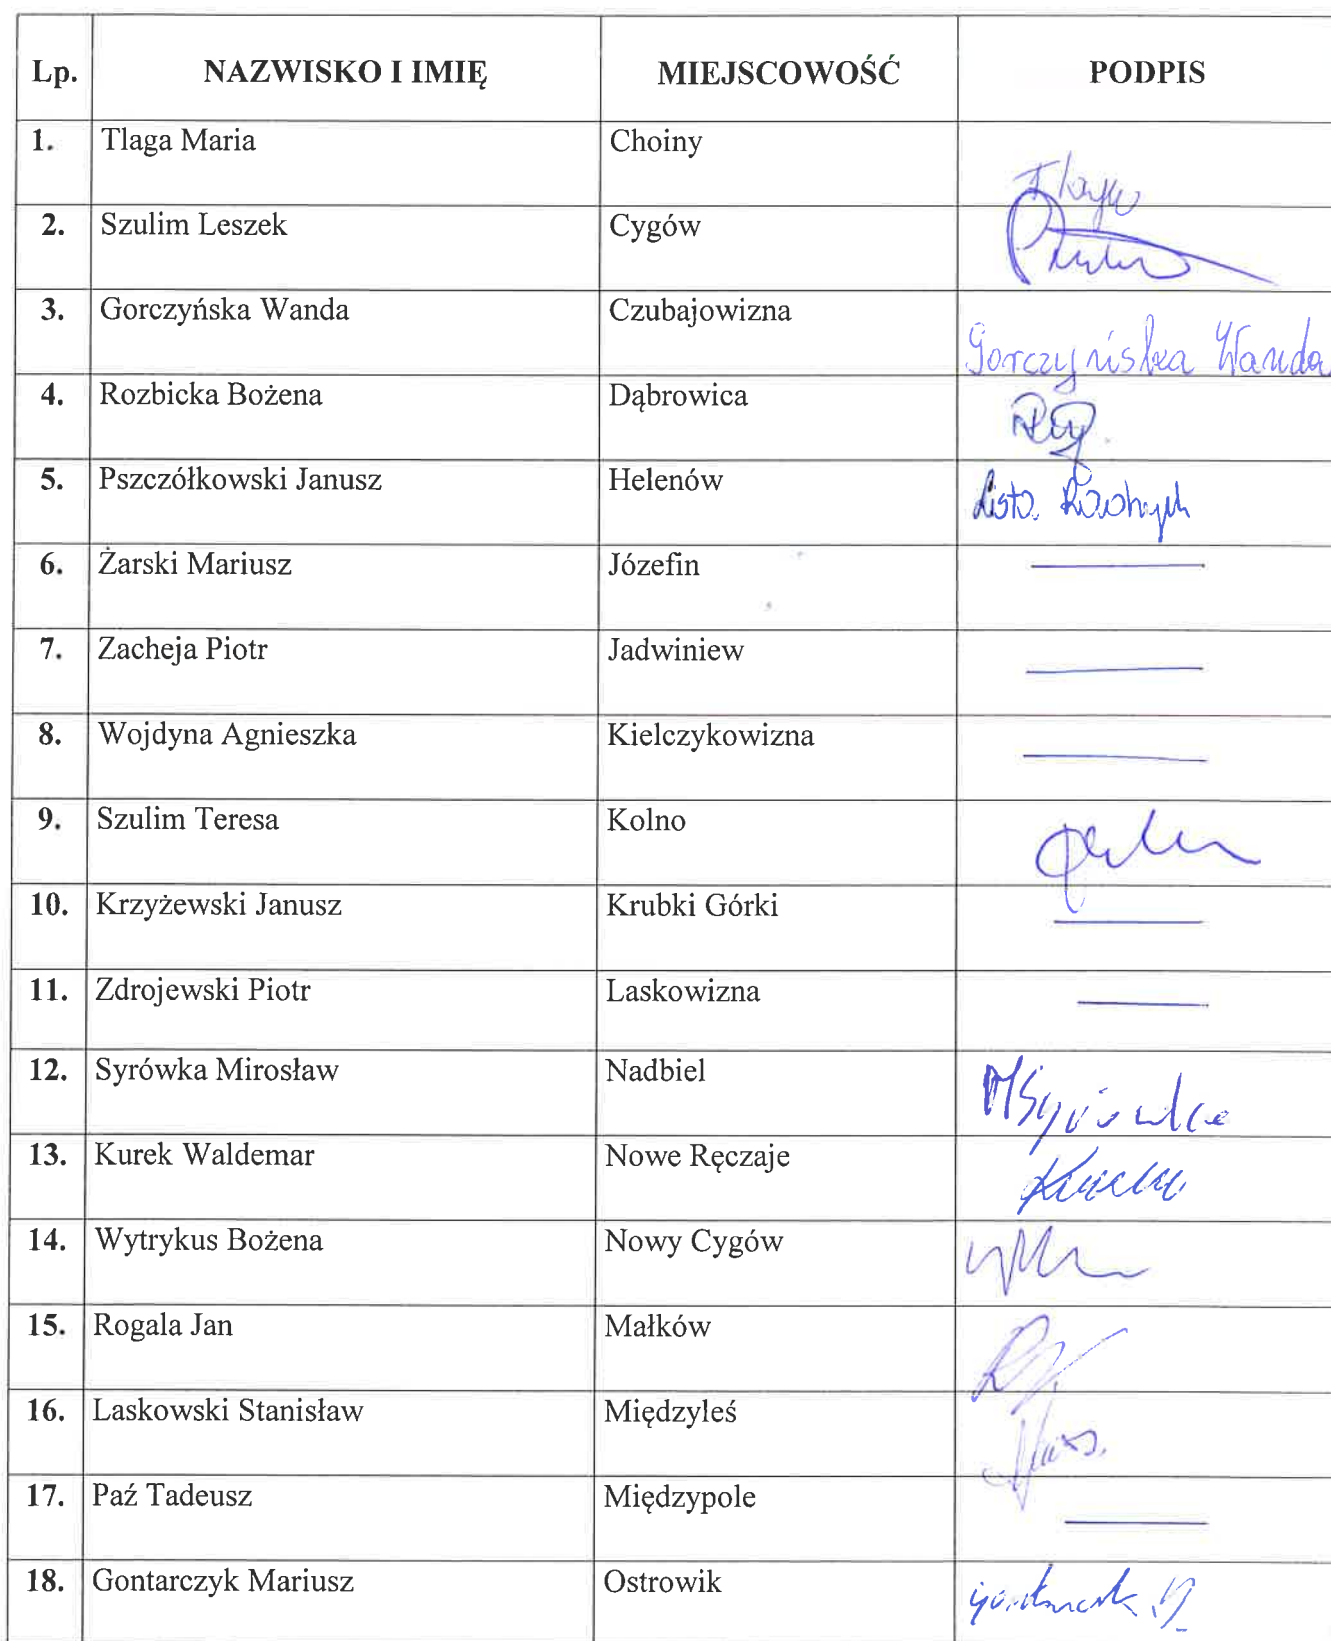 Lp. NAZWISKO I IMIĘ MIEJSCOWOŚĆ PODPIS
1. Tlaga Maria Choiny Tlaga
2. Szulim Leszek Cygów
3. Gorczyńska Wanda Czubajowizna Gorczyńska Wanda
4. Rozbicka Bożena Dąbrowica
5. Pszczółkowski Janusz Helenów Lista
6. Żarski Mariusz Józefin
7. Zacheja Piotr Jadwiniew
8. Wojdyna Agnieszka Kielczykowizna
9. Szulim Teresa Kolno
10. Krzyżewski Janusz Krubki Górki
11. Zdrojewski Piotr Laskowizna
12. Syrówka Mirosław Nadbiel MSyrówka
13. Kurek Waldemar Nowe Ręczaje
14. Wytrykus Bożena Nowy Cygów
15. Rogala Jan Małków
16. Laskowski Stanisław Międzyleś
17. Paź Tadeusz Międzypole
18. Gontarczyk Mariusz Ostrowik